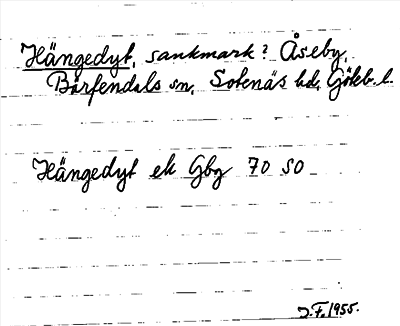 Hängedyt, sankmark? Åseby,
Bärfendals sn, Sotenäs hd, Göteb. l.
Hängedyt ek Gbg 70 SO
J.F. 1955.